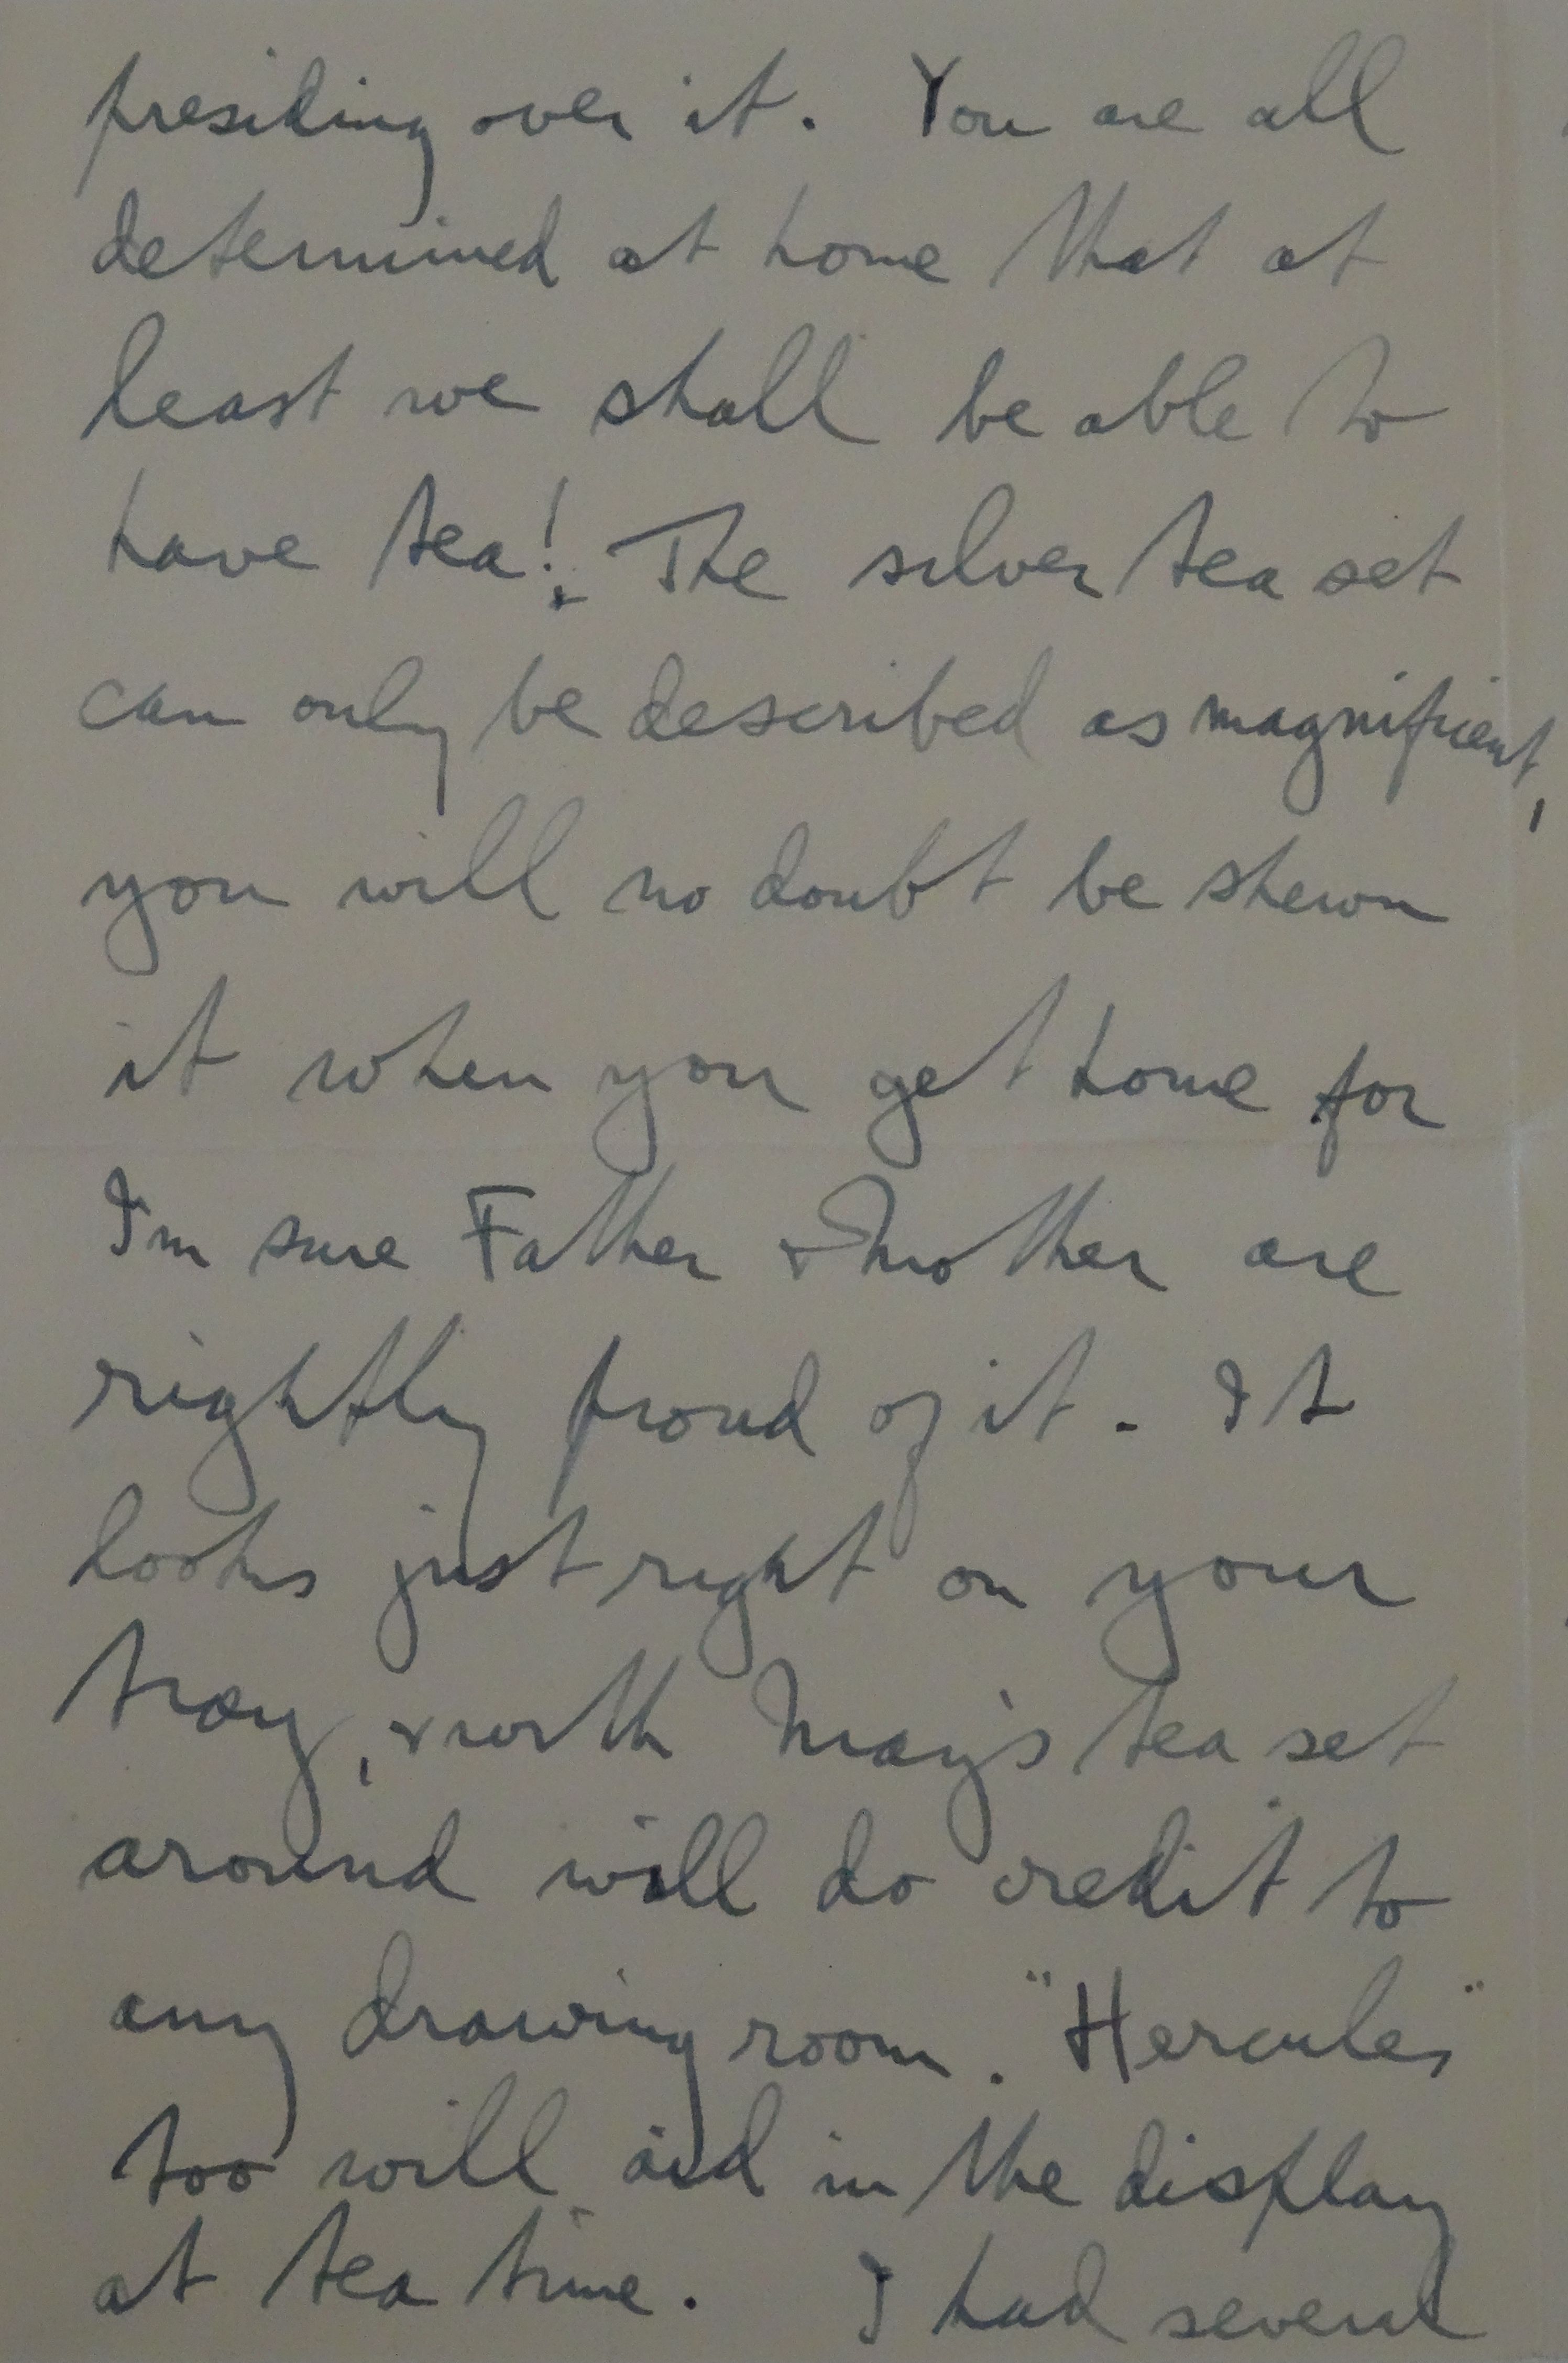 presiding over it. You are all
determined at home that at
least we shall be able to
have tea! The silver tea set
can only be described as magnificent,
you will no doubt be shewn
it when you get home for
I'm sure Father & Mother are
rightly proud of it. It
looks just right on your
tray, & with May's tea set
around will do credit to
any drawing room. "Hercules"
too will aid in the display
at tea time. I had several